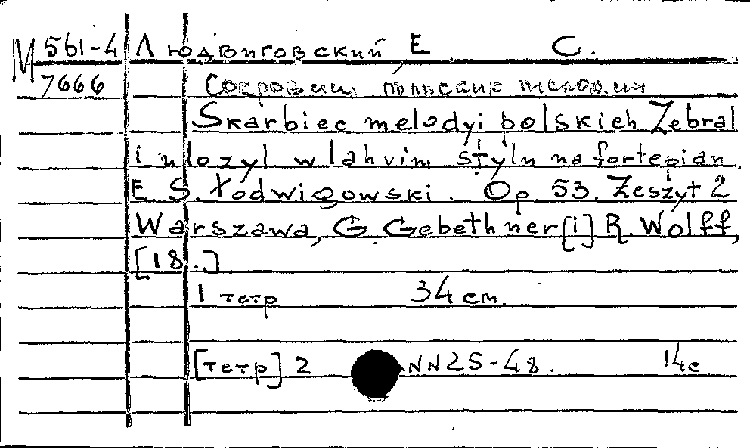 М 561-4 Людвиговский, Е. С.
7666 Сокровищ польские мелодии
Skarbiec melodyi polskich Zebral
i ulozyl w lahvim stylu na fortepian
E S. Łodwigowski. Op 53. Zeszyt 2
Warszawa, G. Gebethner [i] R. Wolff,
[18..]
1 тетр 34 cm.
[тетр] 2 NN25-48. 14с